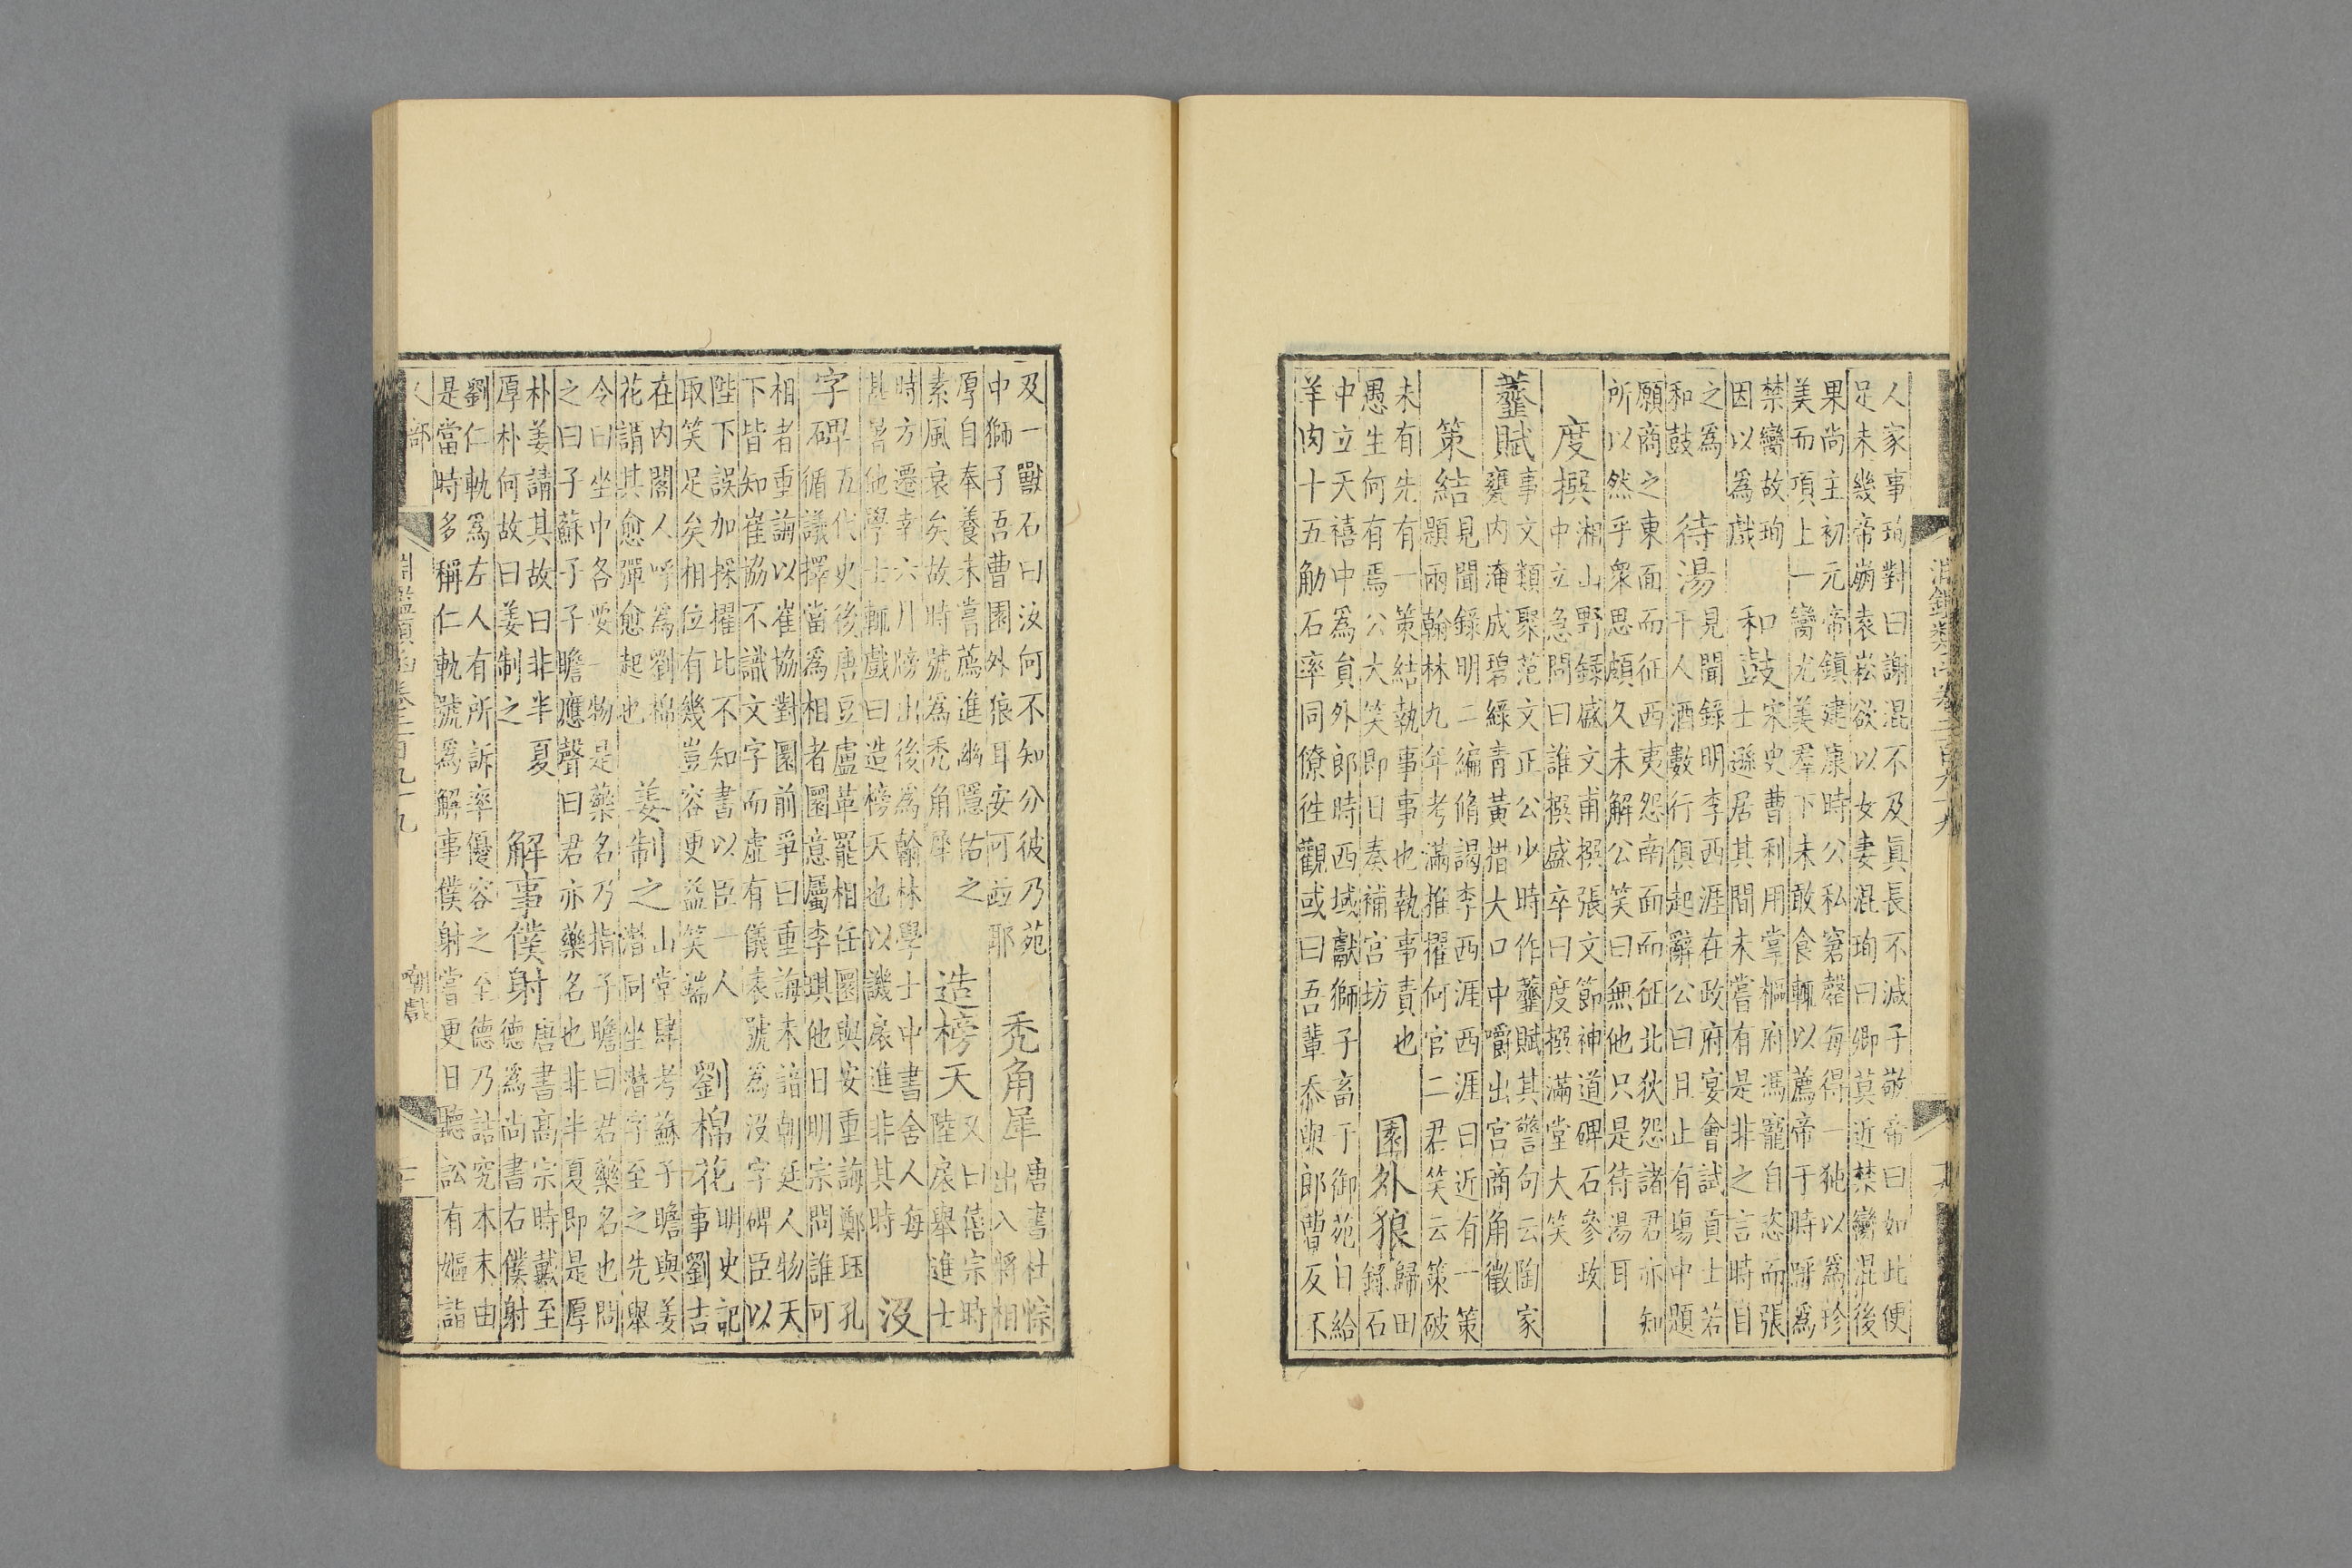 淵鑑類函卷三百九十九
人家事珣對曰謝混不及真長不減子敬帝曰如此便
足未幾帝崩袁崧欲以女妻混珣曰卿莫近禁臠混後
果尚主初元帝鎮建康時公私窘罄每得一㹠以爲珍
美而項上一臠尤美羣下未敢食輒以薦帝于時呼爲
禁臠故珣
因以爲戲
和鼓
宋史曹利用掌樞府馮寵自恣而張
士遜居其間未嘗有是非之言時目
之爲
和鼓
待湯
見聞錄明李西涯在政府宴會試貢士若
干人酒數行俱起辭公曰且止有塲中題
願商之東面而征西夷怨南面而征北狄怨諸君亦知
所以然乎衆思頗久未解公笑曰無他只是待湯耳
度撰
湘山野錄盛文甫撰張文節神道碑石參政
中立急問曰誰撰盛卒曰度撰滿堂大笑
虀賦
事文類聚范文正公少時作虀賦其警句云陶家
甕內淹成碧綠青黃措大口中嚼出宮商角徵
策結
見聞錄明二編脩謁李西涯西涯曰近有一策
題兩翰林九年考滿推擢何官二君笑云策破
未有先有一策結執事事也執事責也
愚生何有焉公大笑即日奏補宮坊
園外狼
歸田
錄石
中立天禧中爲員外郎時西域獻獅子畜于御苑日給
羊肉十五觔石率同僚徃觀或曰吾輩忝與郎曹反不
及一獸石曰汝何不知分彼乃苑
中獅子吾曹園外狼耳安可並耶
禿角犀
唐書杜悰
出入將相
厚自奉養未嘗薦進幽隱佑之
素風衰矣故時號爲禿角犀
造榜天
又曰僖宗時
陸扆舉進士
時方遷幸六月牓出後爲翰林學士中書舍人每
甚暑他學士輒戲曰造榜天也以譏扆進非其時
沒
字碑
五代史後唐豆盧革罷相任圜與安重誨鄭珏孔
循議擇當爲相者圜意屬李琪他日明宗問誰可
相者重誨以崔協對圜前爭曰重誨未諳朝廷人物天
下皆知崔協不識文字而虛有儀表號爲沒字碑臣以
陛下誤加採擢比不知書以臣一人
取笑足矣相位有幾豈容更益笑端
劉棉花
明史記
事劉吉
在內閣人呼爲劉棉
花謂其愈彈愈起也
姜制之
山堂肆考蘇子瞻與姜
潛同坐潛字至之先舉
令曰坐中各要一物是藥名乃指子瞻曰君藥名也問
之曰子蘇子子瞻應聲曰君亦藥名也非半夏即是厚
朴姜請其故曰非半夏
厚朴何故曰姜制之
解事僕射
唐書高宗時戴至
德爲尚書右僕射
劉仁軌爲左人有所訴率優容之至德乃詰究本末由
是當時多稱仁軌號爲解事僕射嘗更日聽訟有嫗詣
人部
嘲戲
淵鑑類函卷三百九十九